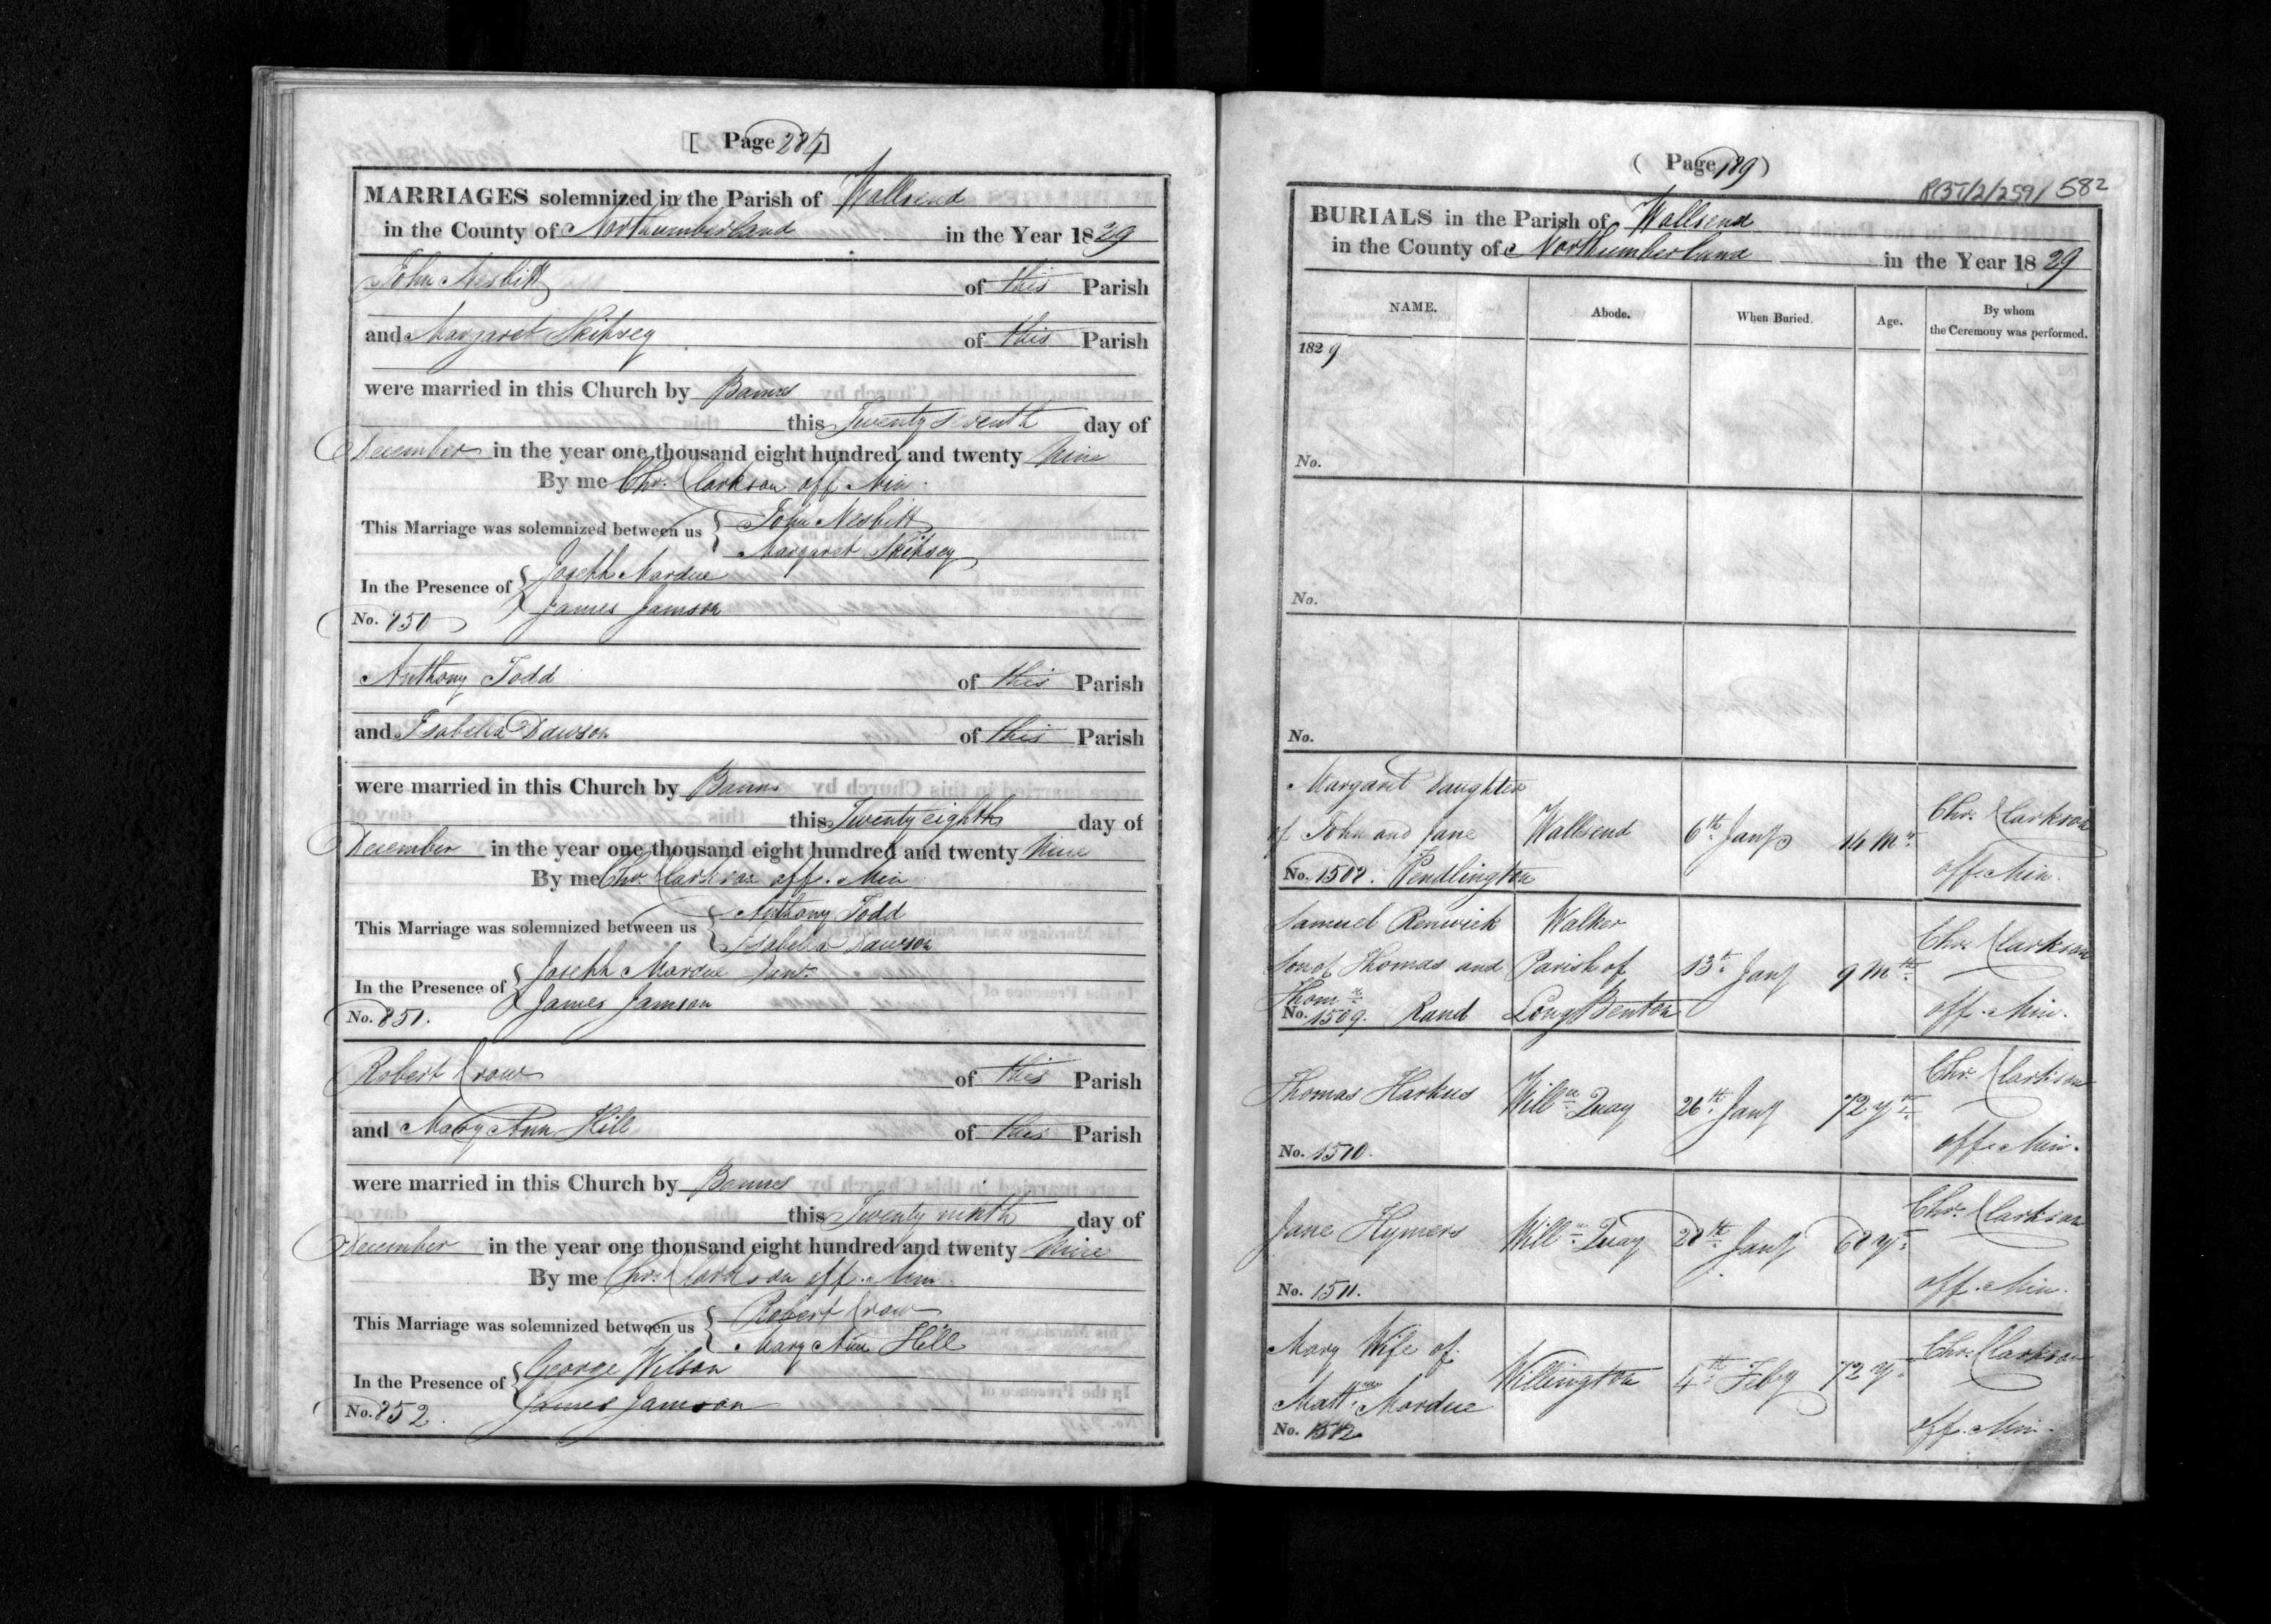 [ Page 284 ]
MARRIAGES solemnized in the Parish of Wallsend
in the County of Northumberland in the Year 1829
John Nesbitt of this Parish
and Margaret Skipsey of this Parish
were married in this Church by Banns
this Twenty seventh day of
December in the year one thousand eight hundred and twenty Nine
By me Chr. Clarkson off. Min.
This Marriage was solemnized between us { John Nesbitt
Margaret Skipsey
In the Presence of { Joseph Mordue
James Jamson
No. 850
Anthony Todd of this Parish
and Isabella Dawson of this Parish
were married in this Church by Banns
this Twenty eighth day of
December in the year one thousand eight hundred and twenty Nine
By me Chr. Clarkson off. Min
This Marriage was solemnized between us { Anthony Todd
Isabella Dawson
In the Presence of { Joseph Mordue Junr.
James Jamson
No. 851.
Robert Crow of this Parish
and Mary Ann Hill of this Parish
were married in this Church by Banns
this Twenty ninth day of
December in the year one thousand eight hundred and twenty Nine
By me Chr. Clarkson off. Min.
This Marriage was solemnized between us { Robert Crow
Mary Ann Hill
In the Presence of { George Wilson
James Jamson
No. 852.
( Page 189 )
RBT/2/259/582
BURIALS in the Parish of Wallsend
in the County of Northumberland in the Year 1829
NAME. Abode. When Buried. Age. By whom the Ceremony was performed.
1829
No.
No.
No.
Margaret daughter
of John and Jane Wallsend 6th Jany 14 Ms. Chr. Clarkson
No. 1508. Pendlington off. Min.
Samuel Renwick Walker
Son of Thomas and Parish of 13th Jany 9 Mth. Chr. Clarkson
Thomn.
No. 1509. Rand Long Benton off. Min.
Thomas Harkus Willn. Quay 26th Jany 72 yrs. Chr. Clarkson
No. 1510. off. Min.
Jane Hymers Willn. Quay 28th Jany 68 yrs. Chr. Clarkson
No. 1511. off. Min.
Mary Wife of Willington 4th Feby 72 y. Chr. Clarkson
Mattw. Mordue
No. 1512 off. Min.